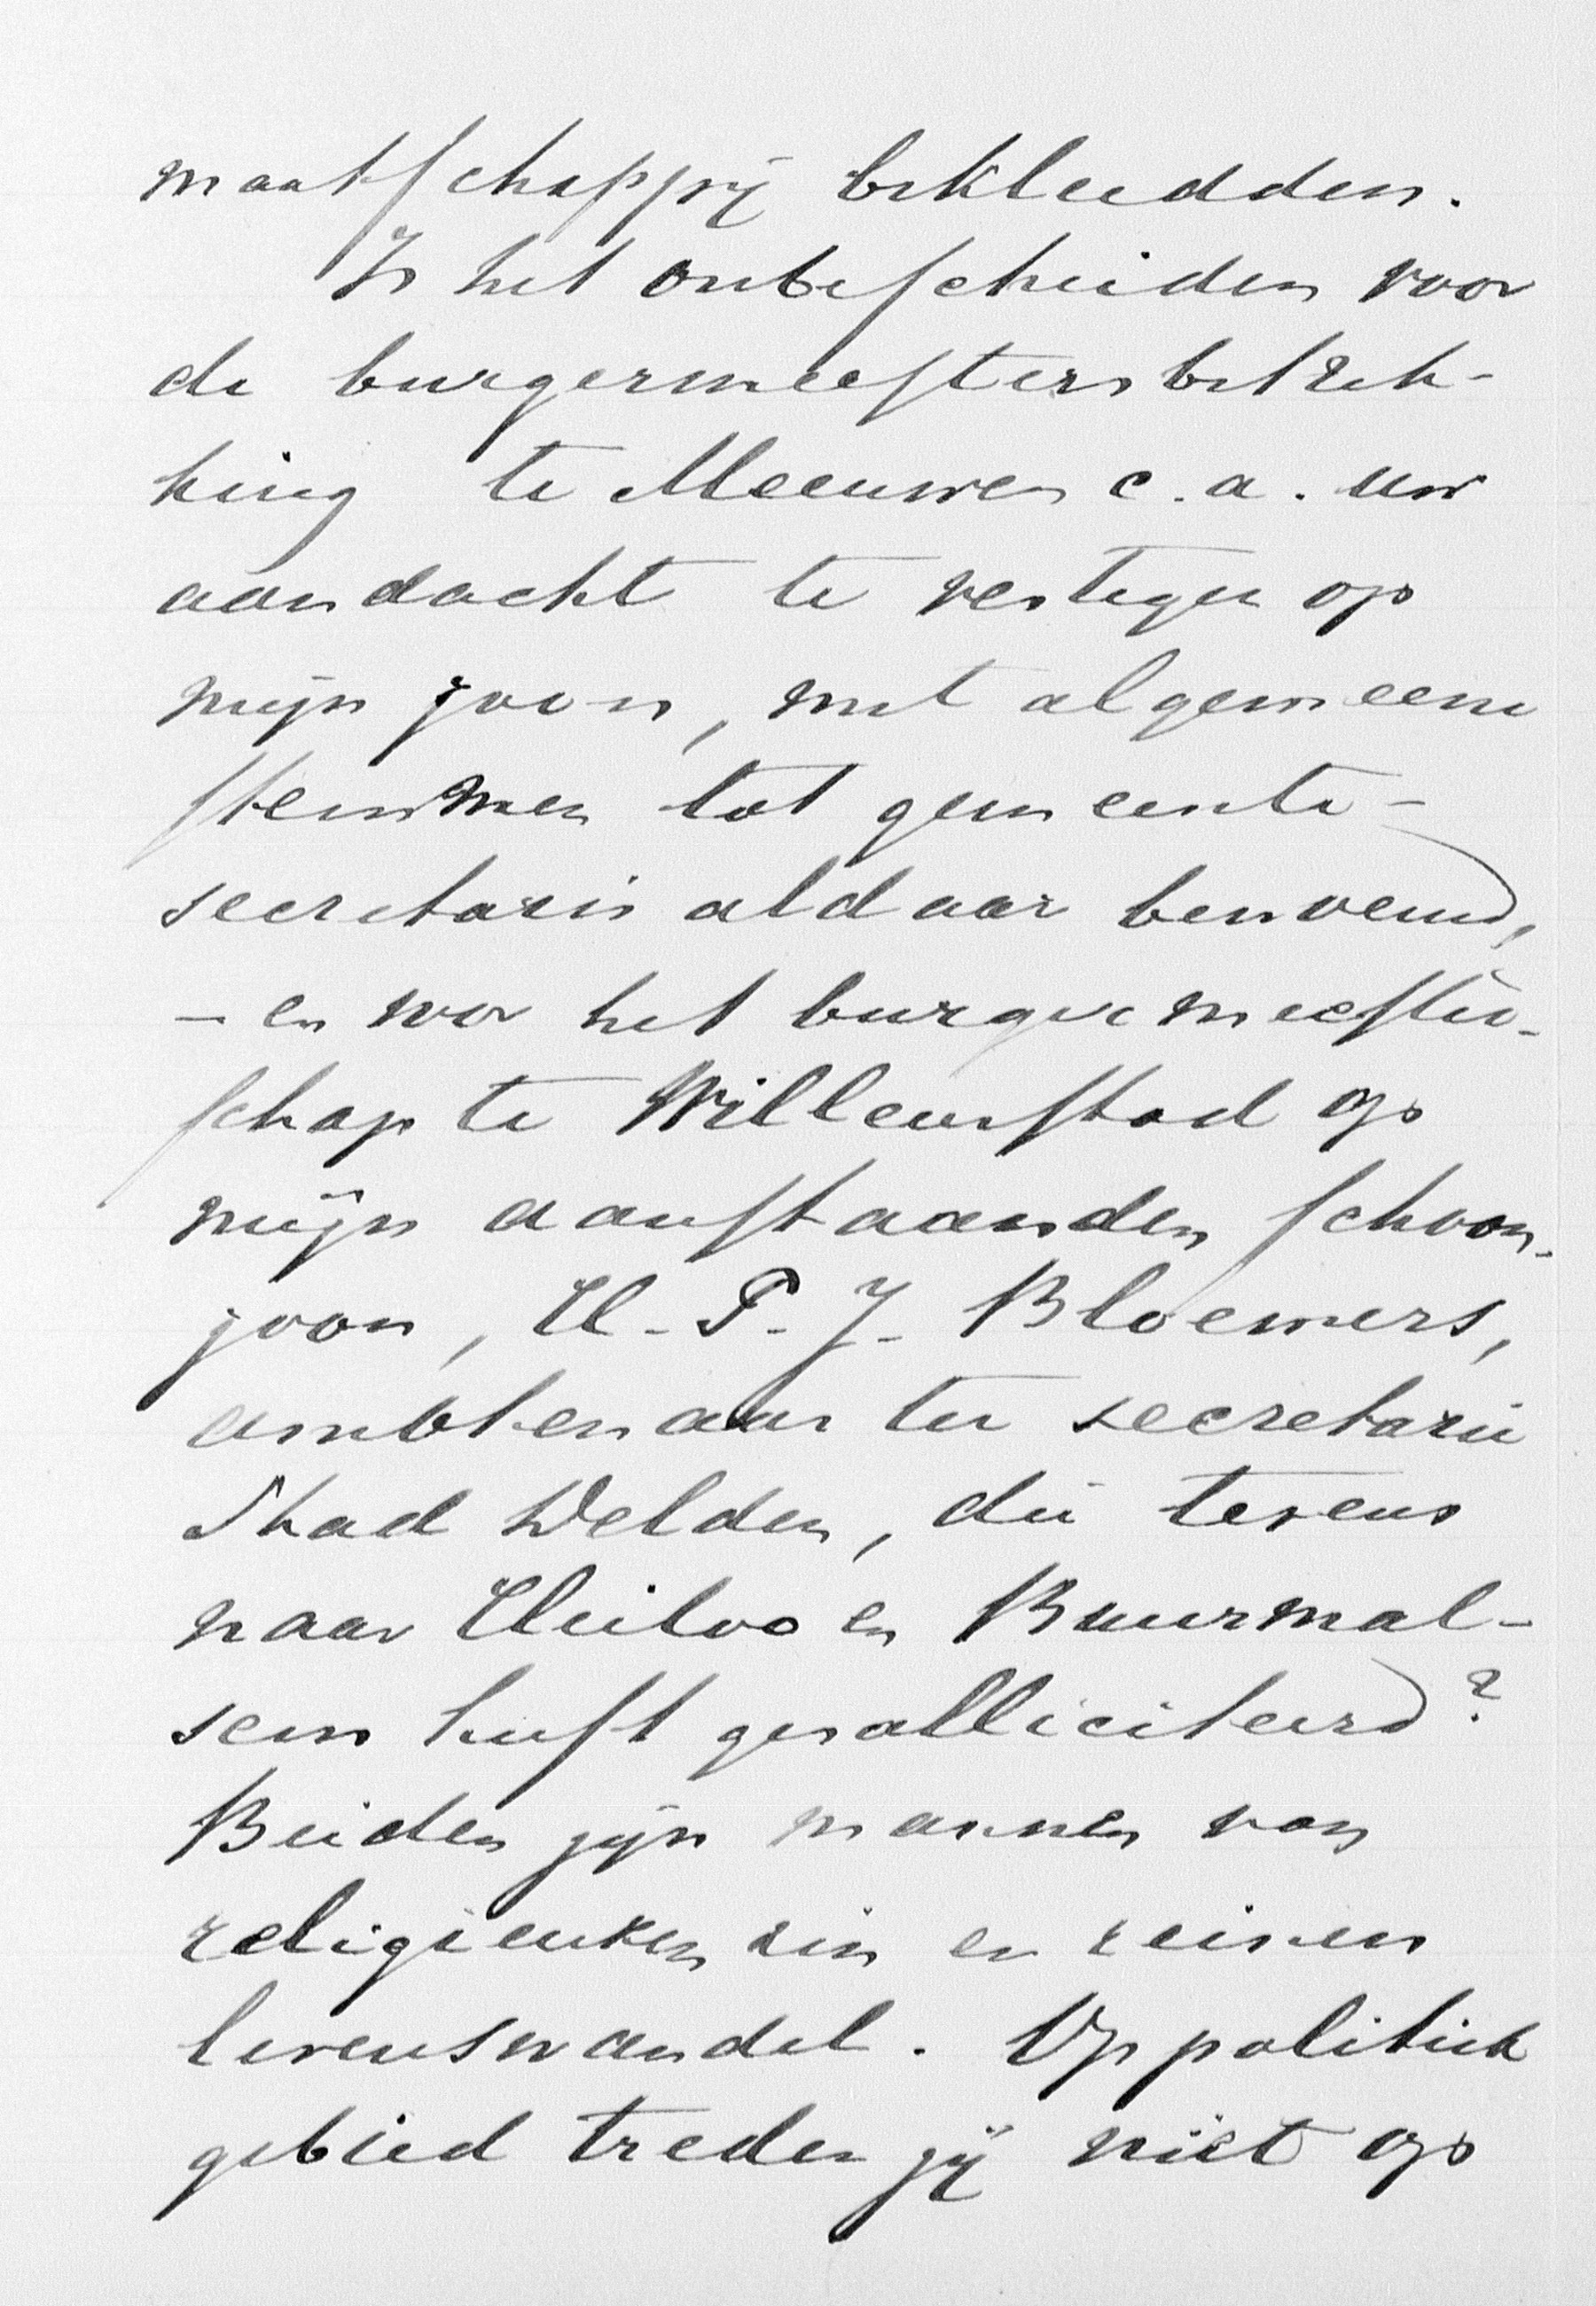 maatschappij bekleedden.
Is het onbescheiden voor
de burgermeestersbetrek-
king te Meeuwen c.a. uw
aandacht te vestigen op
mijn zoon, met algemeene
stemmen tot gemeente-
secretaris aldaar benoemd,
- en voor het burgermeester-
schap te Willemstad op
mijn aanstaanden schoon-
zoon, H. P. J. Bloemers,
ambtenaar ter secretarie
Stad Delden, die tevens
naar Heiloo en Buurmal-
sen heeft gesolliciteerd?
Beiden zijn mannen van
religieuzen zin en reinen
levenswandel. Op politiek
gebied treden zij niet op